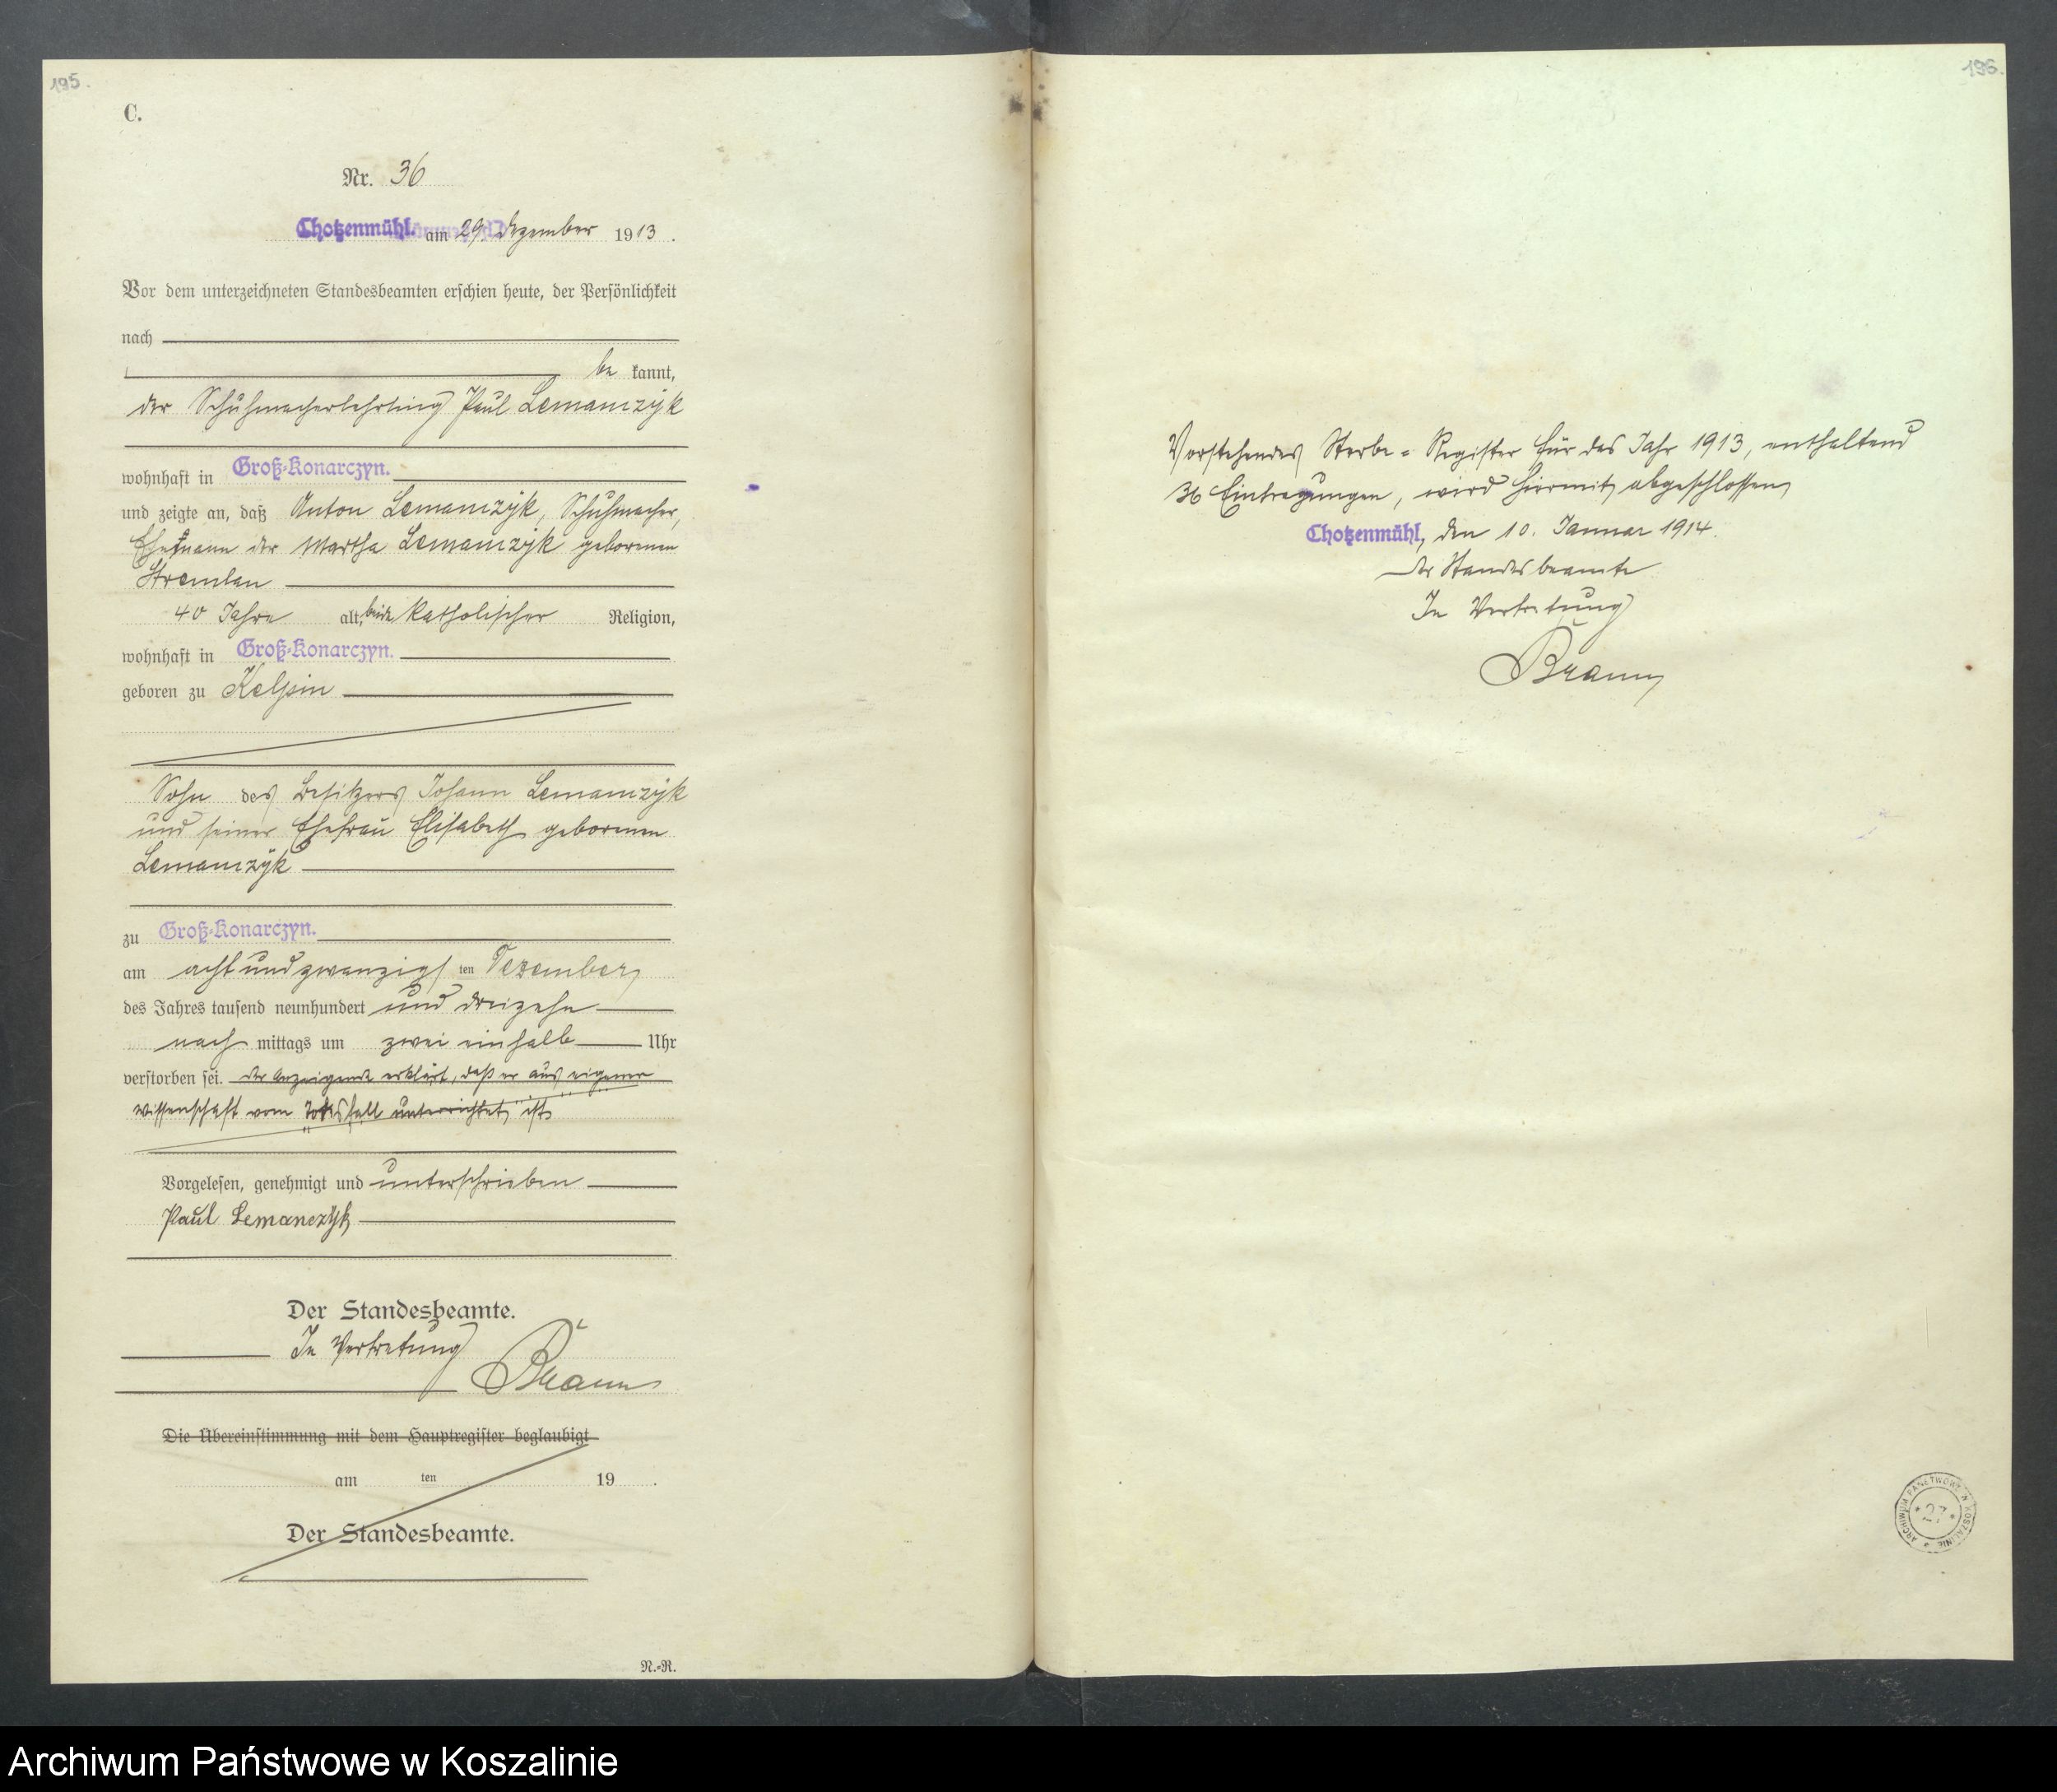 195.
C.
Nr. 36
Chotzenmühl. am 29 Dezember 1913.
Vor dem unterzeichneten Standesbeamten erschien heute, der Persönlichkeit
nach
be kannt,
der Schuhmacherlehrling Paul Lemanczÿk
wohnhaft in Groß-Konarczyn.
und zeigte an, daß Anton Lemanczÿk, Schuhmacher,
Ehemann der Martha Lemanczÿk geborenen
40 Jahre alt, beide katholischer Religion,
wohnhaft in Groß-Konarczyn.
geboren zu Kelpin
Sohn des Besitzers Johann Lemanczÿk
und seiner Ehefrau Elisabeth geborenen
Lemanczÿk
zu Groß-Konarczyn.
am achtundzwanzigsten Dezember
des Jahres tausend neunhundert und dreizehn
nach mittags um zwei einhalb Uhr
verstorben sei. Der Anzeigende erklärt, daß er aus eigener
Wissenschaft vom Todesfall unterrichtet ist
Vorgelesen, genehmigt und unterschrieben
Paul Lemanczÿk
Der Standesbeamte.
In Vertretung
Braun
Die Übereinstimmung mit dem Hauptregister beglaubigt
am ten 19 .
Der Standesbeamte.
N.-R.
196.
Vorstehendes Sterbe-Register für das Jahr 1913, enthaltend
36 Eintragungen, wird hiermit abgeschlossen
Chotzenmühl, den 10. Januar 1914.
Der Standesbeamte
In Vertretung
Braun
ARCHIWUM PAŃSTWOWE W KOSZALINIE
* 27 *
Archiwum Państwowe w Koszalinie